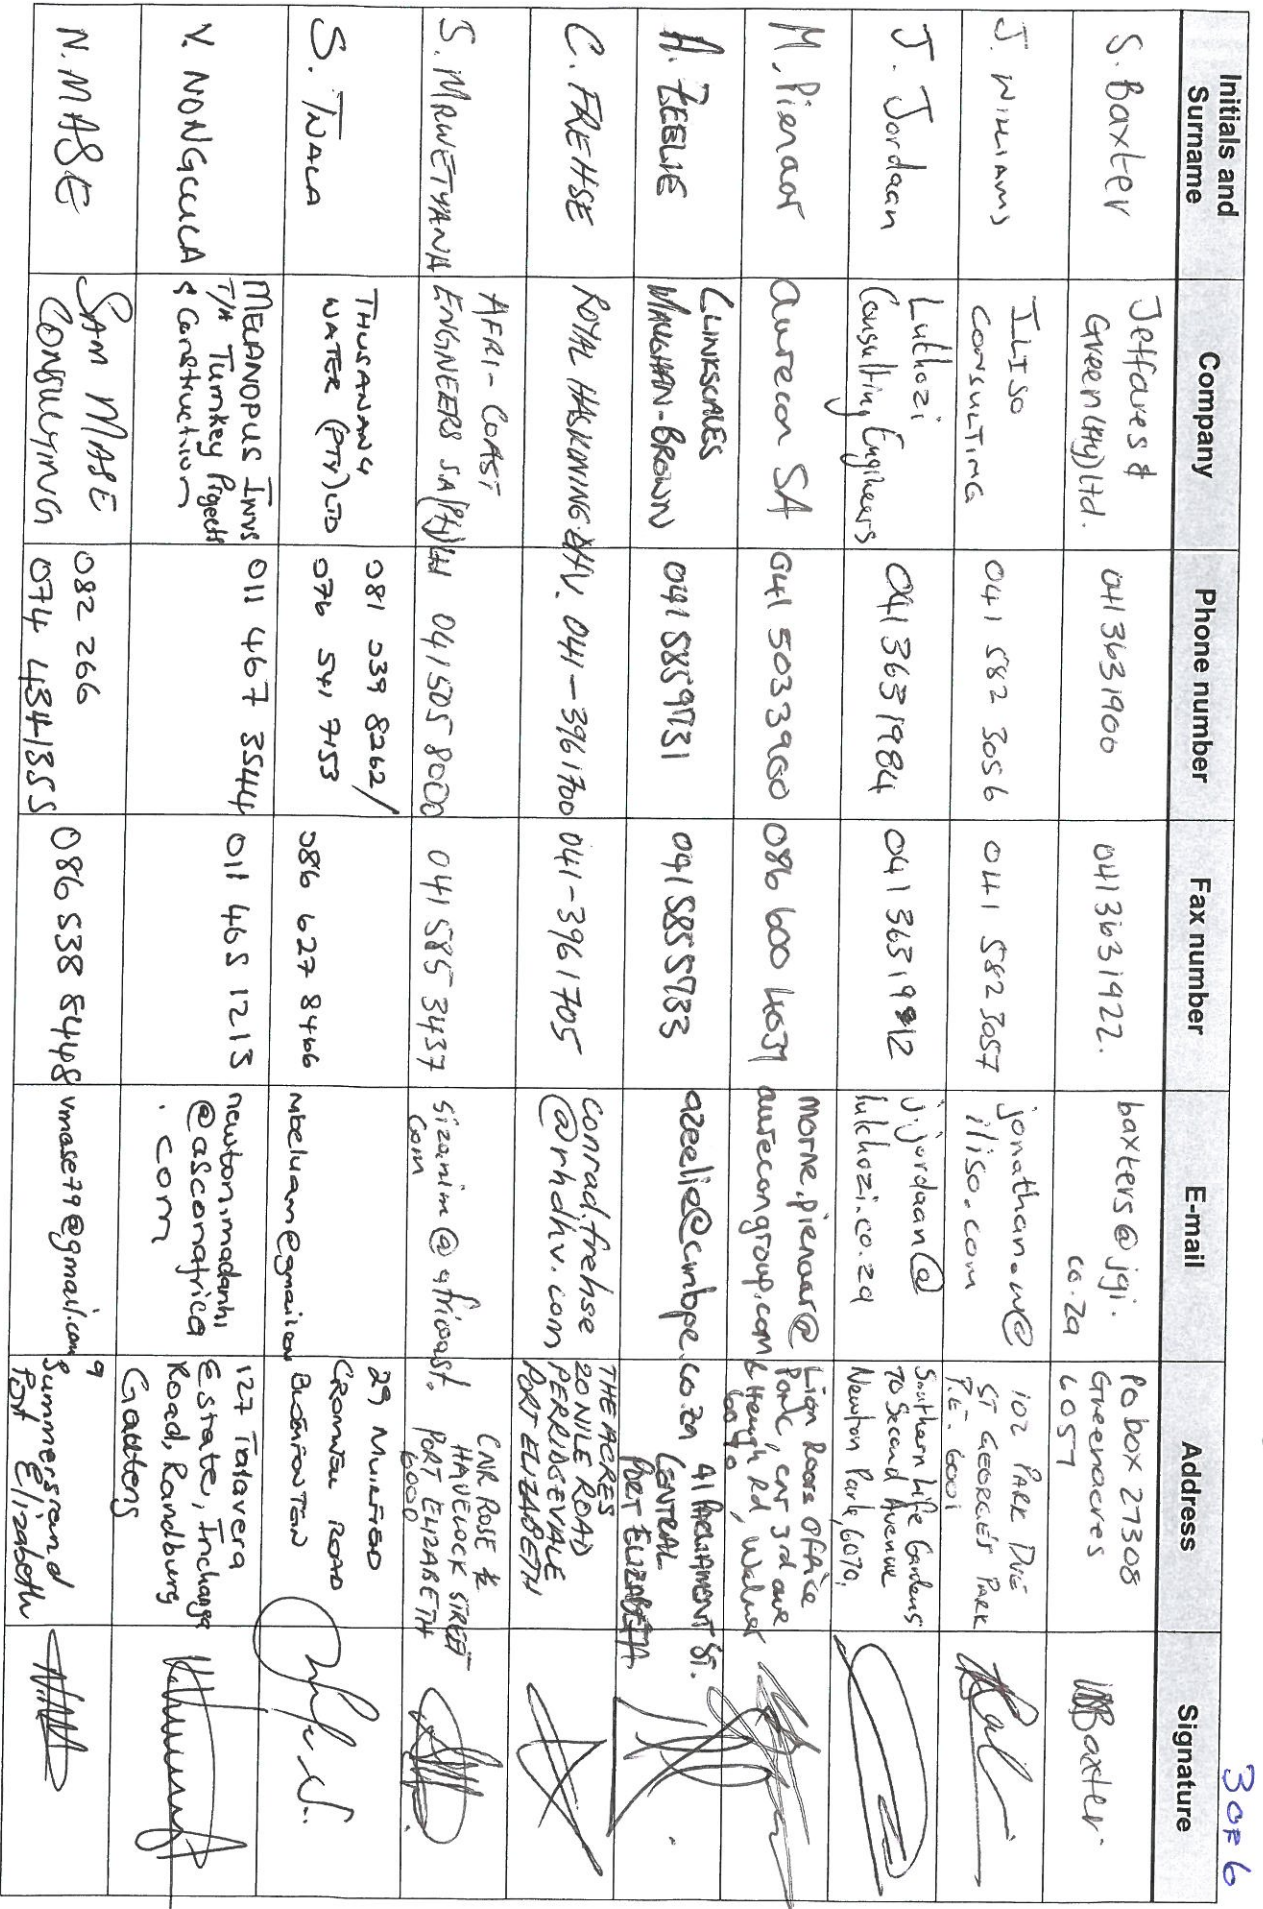 3 OF 6
Initials and Surname Company Phone number Fax number E-mail Address Signature
S. Baxter
Jeffares &
Green (Pty) Ltd.
041 3631900
041 3631922.
baxters@jgi.
co.za
PO box 27308
Greenacres
6057
Baxter
J. WILLIAMS
ILISO
CONSULTING
041 582 3056
041 582 3057
jonathan.w@
iliso.com
102 PARK DVE
ST GEORGE'S PARK
P.E. 6001
J. Jordaan
Lukhozi
Consulting Engineers
041 3631984
041 3631912
j.jordaan@
lukhozi.co.za
Southern Life Gardens
70 Second Avenue
Newton Park, 6070,
M. Pienaar
aurecon SA
041 503 3900
086 600 4037
morne.pienaar@
aurecongroup.com
Lion Roars Office
Park, cnr 3rd ave
& Heugh Rd, Walmer
6070
A. ZEELIE
CLINKSCALES
MAUGHAN-BROWN
041 5859731
041 5855733
azeelie@cmbpe.co.za
41 PARLIAMENT ST.
CENTRAL
PORT ELIZABETH
C. FREHSE
ROYAL HASKONING DHV.
041-3961700
041-3961705
conrad.frehse
@rhdhv.com
THE ACRES
20 NILE ROAD
PERRIDGEVALE
PORT ELIZABETH
S. MRWETYANA
AFRI-COAST
ENGINEERS SA (Pty) Ltd
041 505 8000
041 585 3437
sizanim@africoast.
com
CNR ROSE &
HAVELOCK STREET
PORT ELIZABETH
6000
S. TWALA
THUSANANG
WATER (PTY) LTD
081 039 8262/
076 541 7153
086 627 8466
mbeluam@gmail.com
29 MUIRFIELD
CROMWELL ROAD
V. NONGCULA
MELANOPUS INVS
T/A Turnkey Projects
& Construction
011 467 3544
011 465 1213
newton.madanhi
@asconafrica
.com
127 Talavera
Estate, Inchanga
Road, Randburg
Gauteng
N. MASE
SAM MASE
CONSULTING
082 266
074 4341355
086 538 8448
vmase79@gmail.com
9
Summerstrand
Port Elizabeth